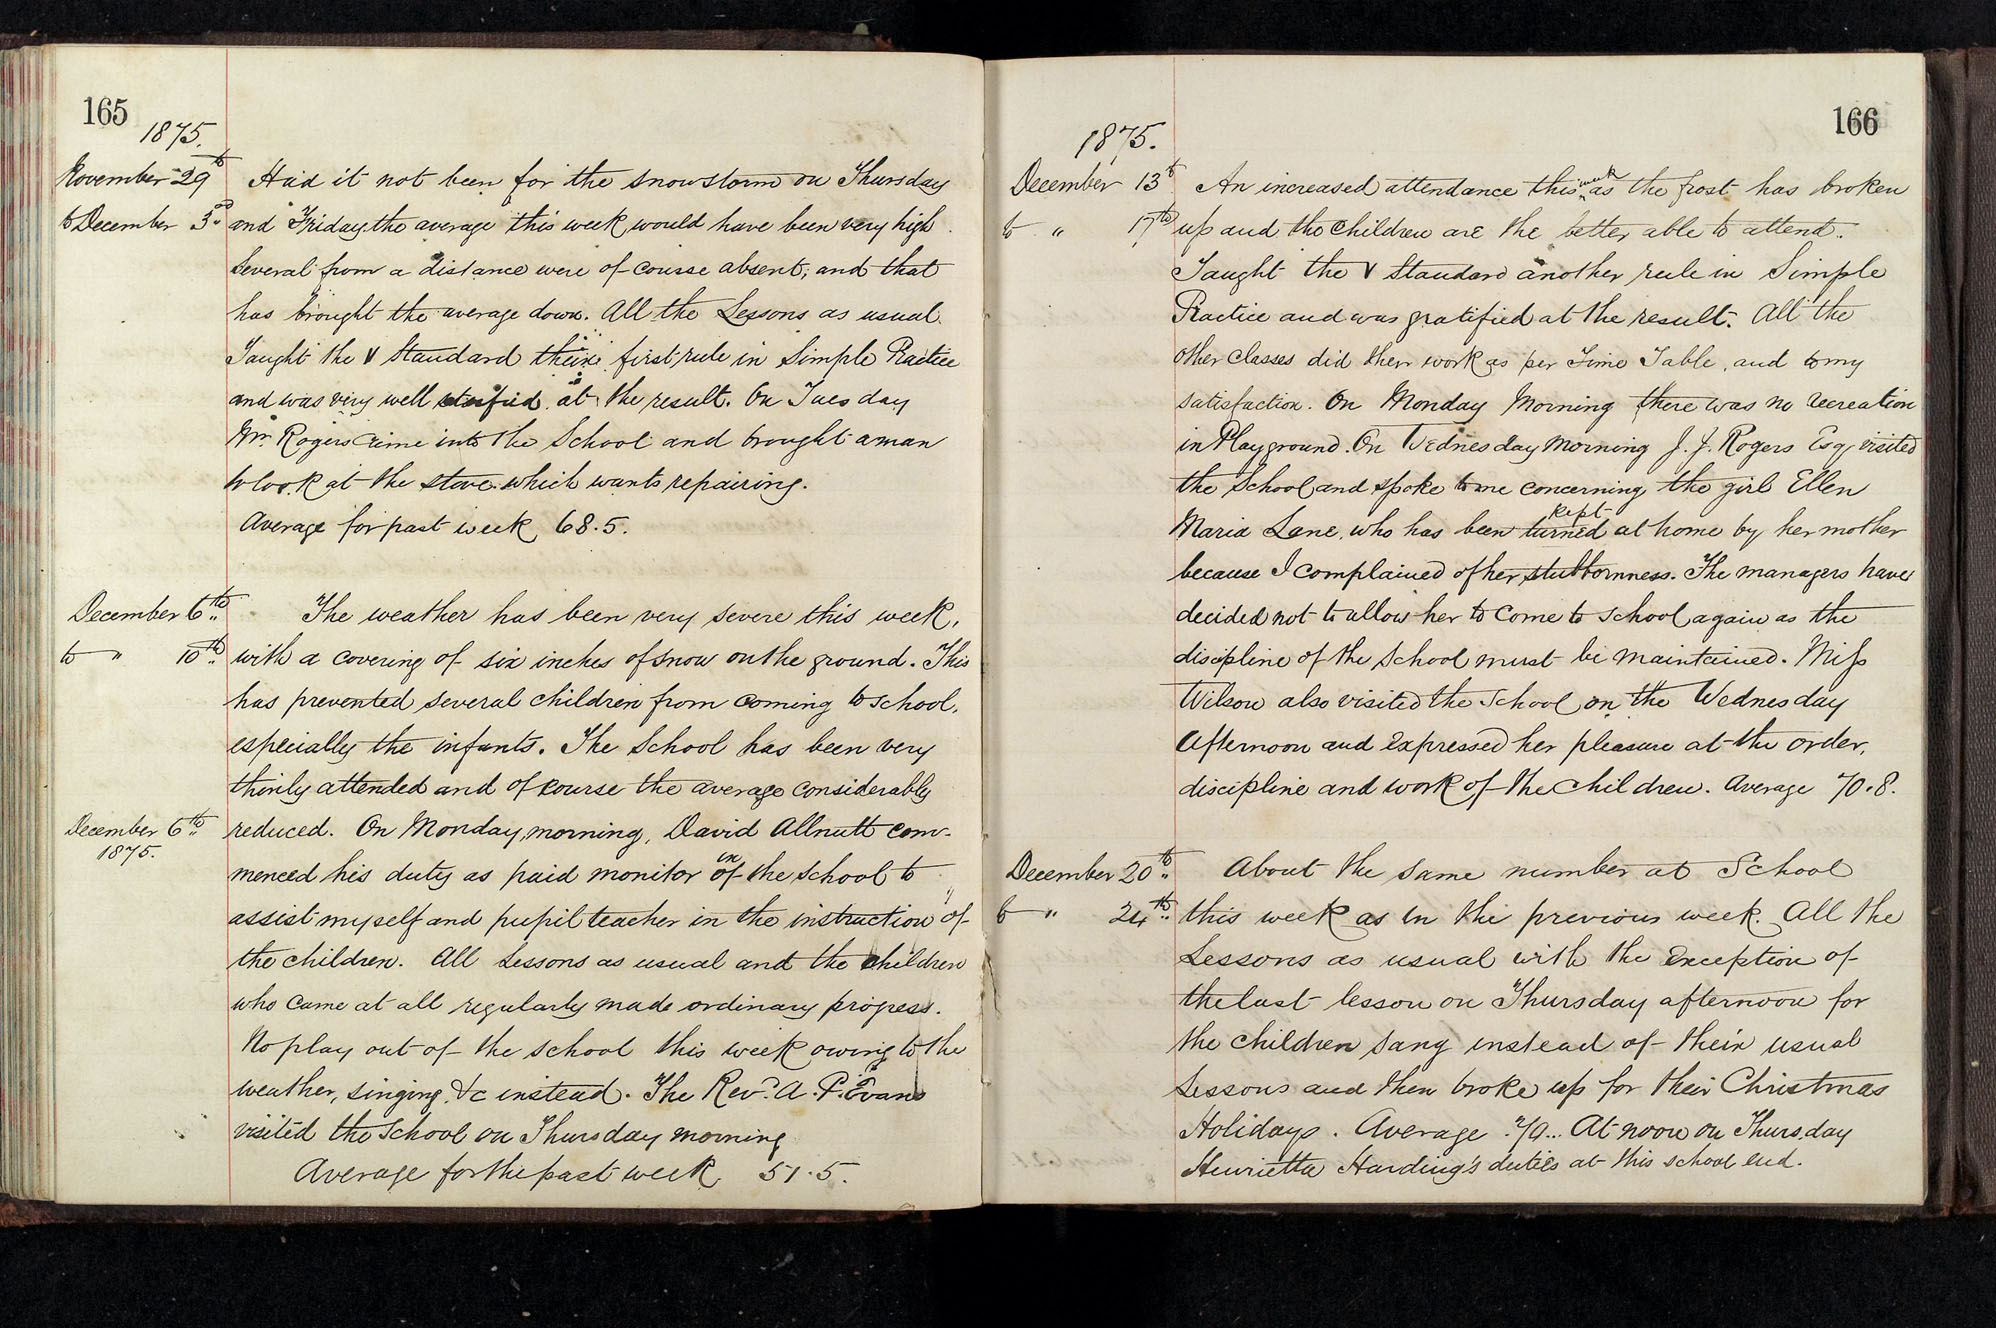 165
1875.
November 29th Had it not been for the snowstorm on Thursday
to December 3rd and Friday the average this week would have been very high.
Several from a distance were of course absent, and that
has brought the average down. All the Lessons as usual.
Taught the V Standard their first rule in Simple Practice
and was very well at the result. On Tuesday
Mr. Rogers came into the School and brought a man
to look at the stove which wants repairing.
Average for past week 68.5.
December 6th The weather has been very severe this week,
to " 10th with a covering of six inches of snow on the ground. This
has prevented several children from coming to school,
especially the infants. The School has been very
thinly attended and of course the average considerably
December 6th reduced. On Monday morning, David Allnutt com-
1875.
menced his duty as paid monitor of in the School to
assist myself and pupil teacher in the instruction of
the children. All Lessons as usual and the children
who came at all regularly made ordinary progress.
No play out of the school this week owing to the
weather, singing &c instead. The Revd. A. P. Evans
visited the School on Thursday morning
Average for the past week 51.5.
166
1875.
December 13th An increased attendance this week as the frost has broken
to " 17th up and the children are the better able to attend.
Taught the V Standard another rule in Simple
Practice and was gratified at the result. All the
other classes did their work as per Time Table, and to my
satisfaction. On Monday Morning there was no recreation
in Playground. On Wednesday Morning J. J. Rogers Esq. visited
the School and spoke to me concerning the girl Ellen
Maria Lane, who has been turned kept at home by her mother
because I complained of her stubbornness. The managers have
decided not to allow her to come to school again as the
discipline of the School must be maintained. Miss
Wilson also visited the School on the Wednesday
Afternoon and expressed her pleasure at the order,
discipline and work of the children. Average 70.8.
December 20th About the same number at School
to " 24th this week as in the previous week. All the
Lessons as usual with the exception of
the last lesson on Thursday afternoon for
the children sang instead of their usual
Lessons and then broke up for their Christmas
Holidays. Average At noon on Thursday
Henrietta Harding's duties at this school end.